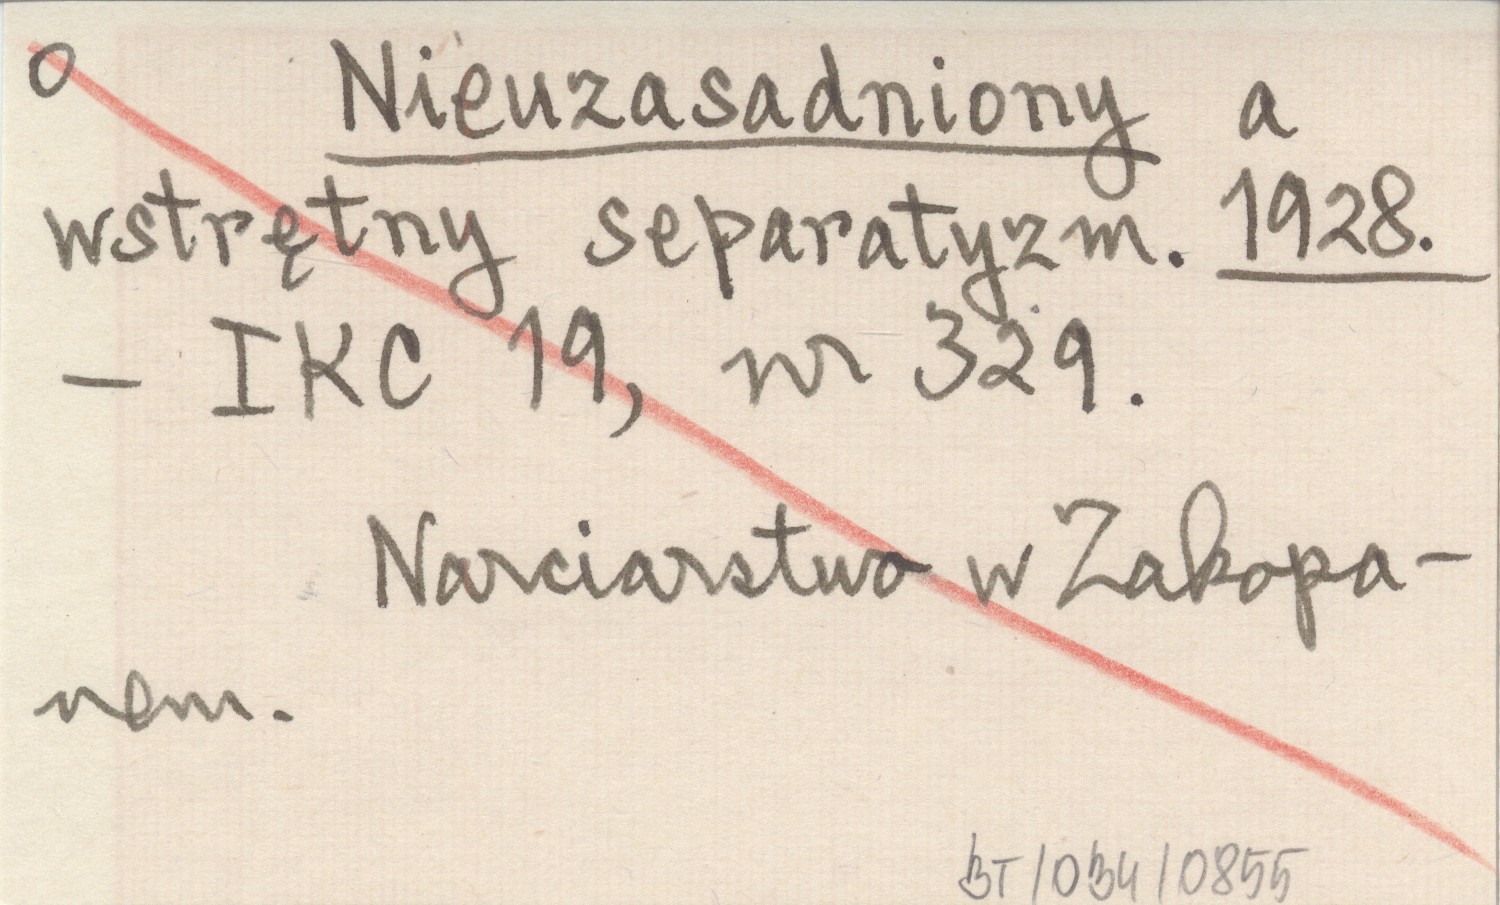 o Nieuzasadniony a
wstrętny separatyzm. 1928.
– IKC 19, nr 329.
Narciarstwo w Zakopa-
nem.
BT/034/0855